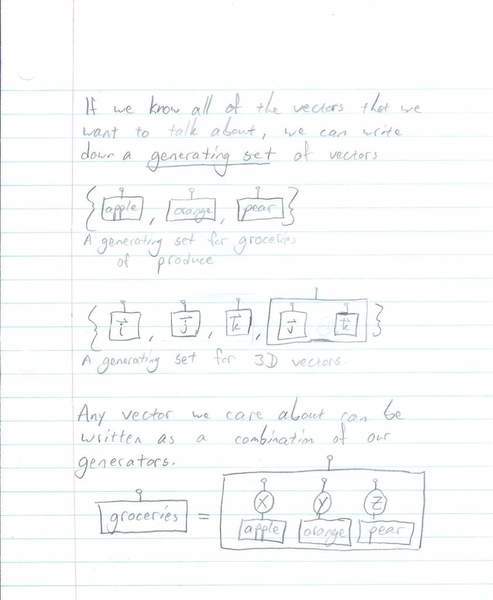 If we know all of the vectors that we
want to talk about, we can write
down a generating set of vectors
{ apple, orange, pear }
A generating set for groceries
of produce
{ i⃗, j⃗, k⃗, v⃗ k⃗ }
A generating set for 3D vectors.
Any vector we care about can be
written as a combination of our
generators.
x y z
groceries = apple orange pear